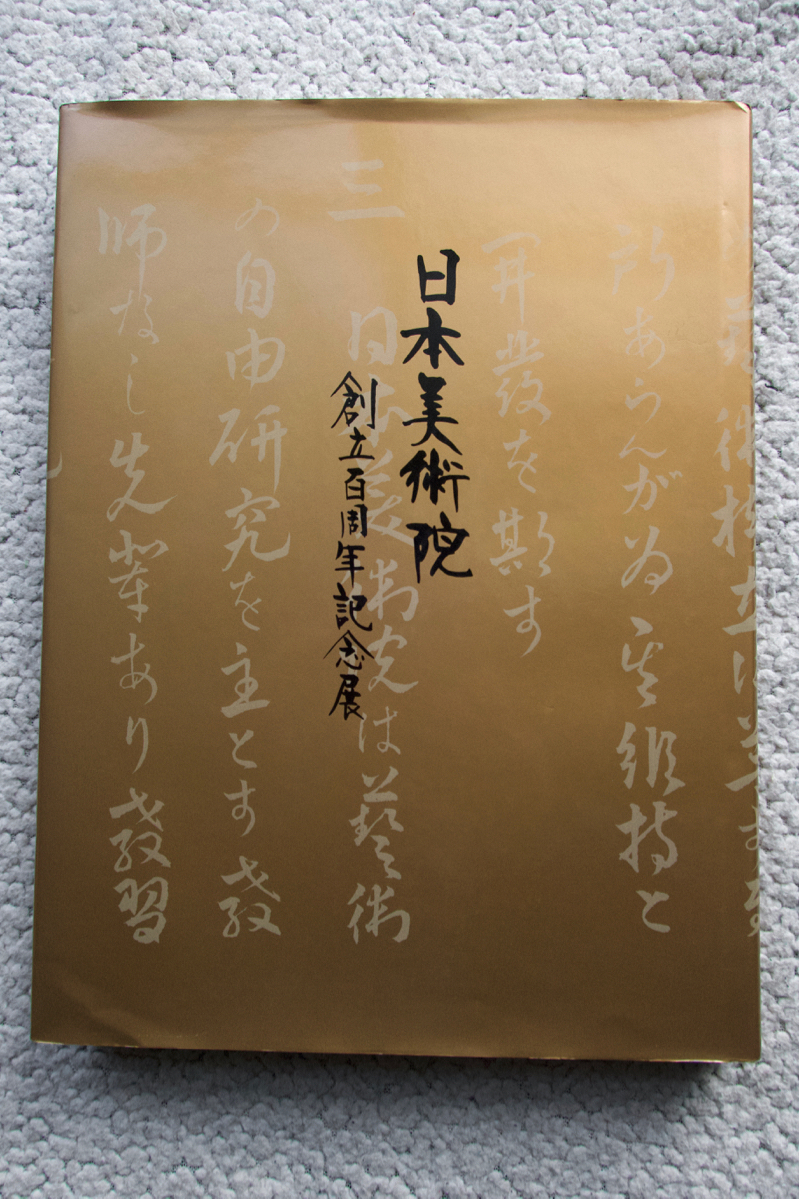 日本美術院
創立百周年記念展
藝術樹立に
所あらんが為其維持と
開發を期す
三
日本美術院は藝術
の自由研究を主とす教
師なし先輩あり教習